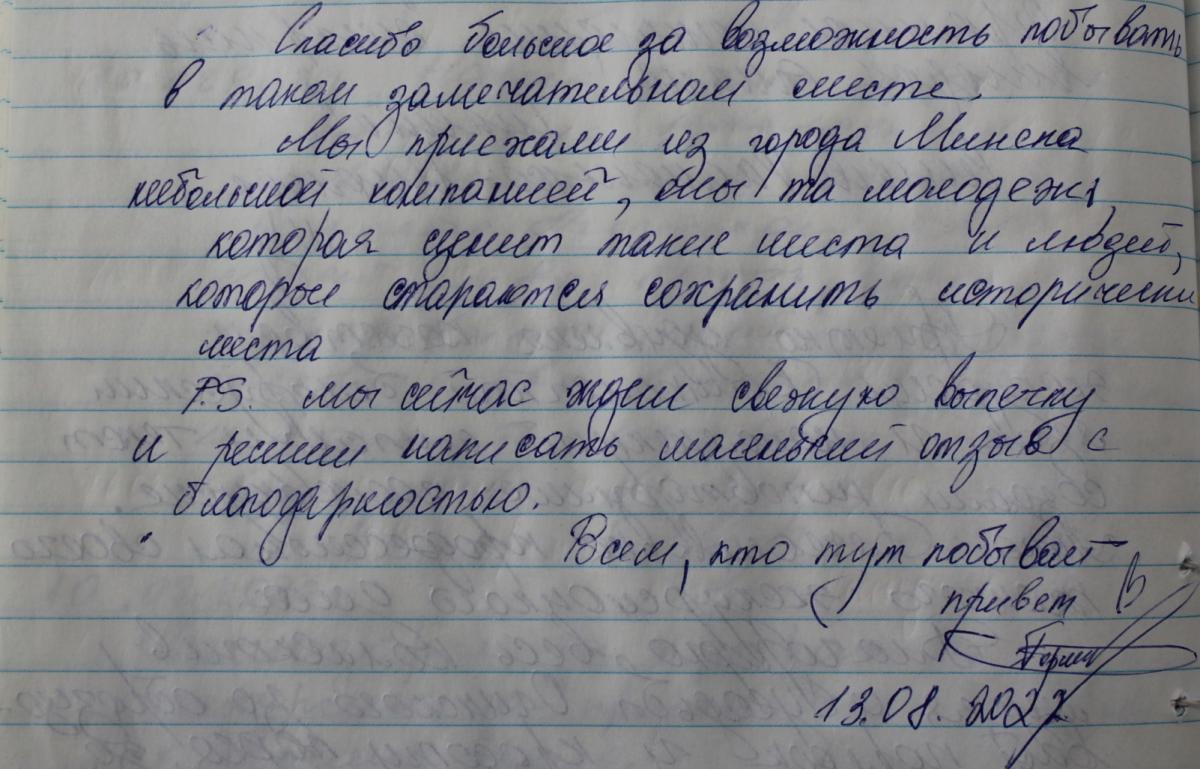 Спасибо большое за возможность побывать
в таком замечательном месте.
Мы приехали из города Минска
небольшой компанией, мы та молодежь,
которая ценит такие места и людей,
которые стараются сохранить исторически
места
P.S. мы сейчас ждем свежую выпечку
и решили написать маленький отзыв с
благодарностью.
Всем, кто тут побывает
привет
13.08.2022